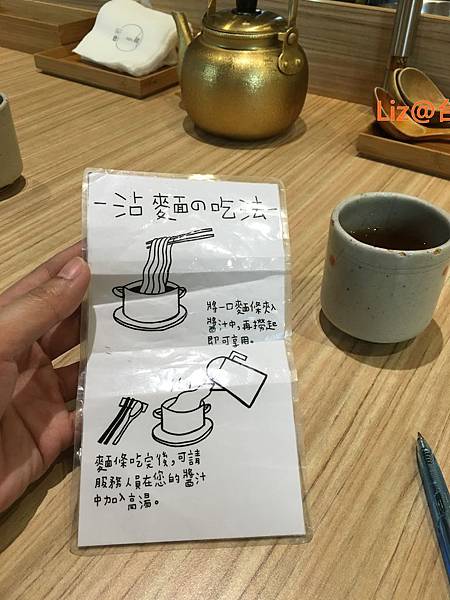 -沾麵の吃法-
將一口麵條夾入
醬汁中,再撈起
即可享用。
麵條吃完後,可請
服務人員在您的醬汁
中加入高湯。
Liz@台